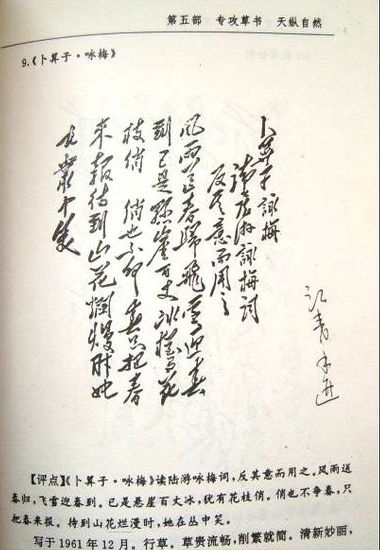 第五部 专攻草书 天纵自然
9.《卜算子·咏梅》
卜算子 詠梅
讀陸游詠梅詞
反其意而用之
風雨送春歸飛雪迎春
到已是懸崖百丈冰猶有花
枝俏 俏也不爭春只把春
來報待到山花爛熳時她
在叢中笑
江青
【评点】《卜算子·咏梅》读陆游咏梅词，反其意而用之。风雨送
春归，飞雪迎春到。已是悬崖百丈冰，犹有花枝俏。俏也不争春，只
把春来报。待到山花烂漫时，她在丛中笑。
写于1961年12月。行草。草贵流畅，削繁就简。清新妙丽，